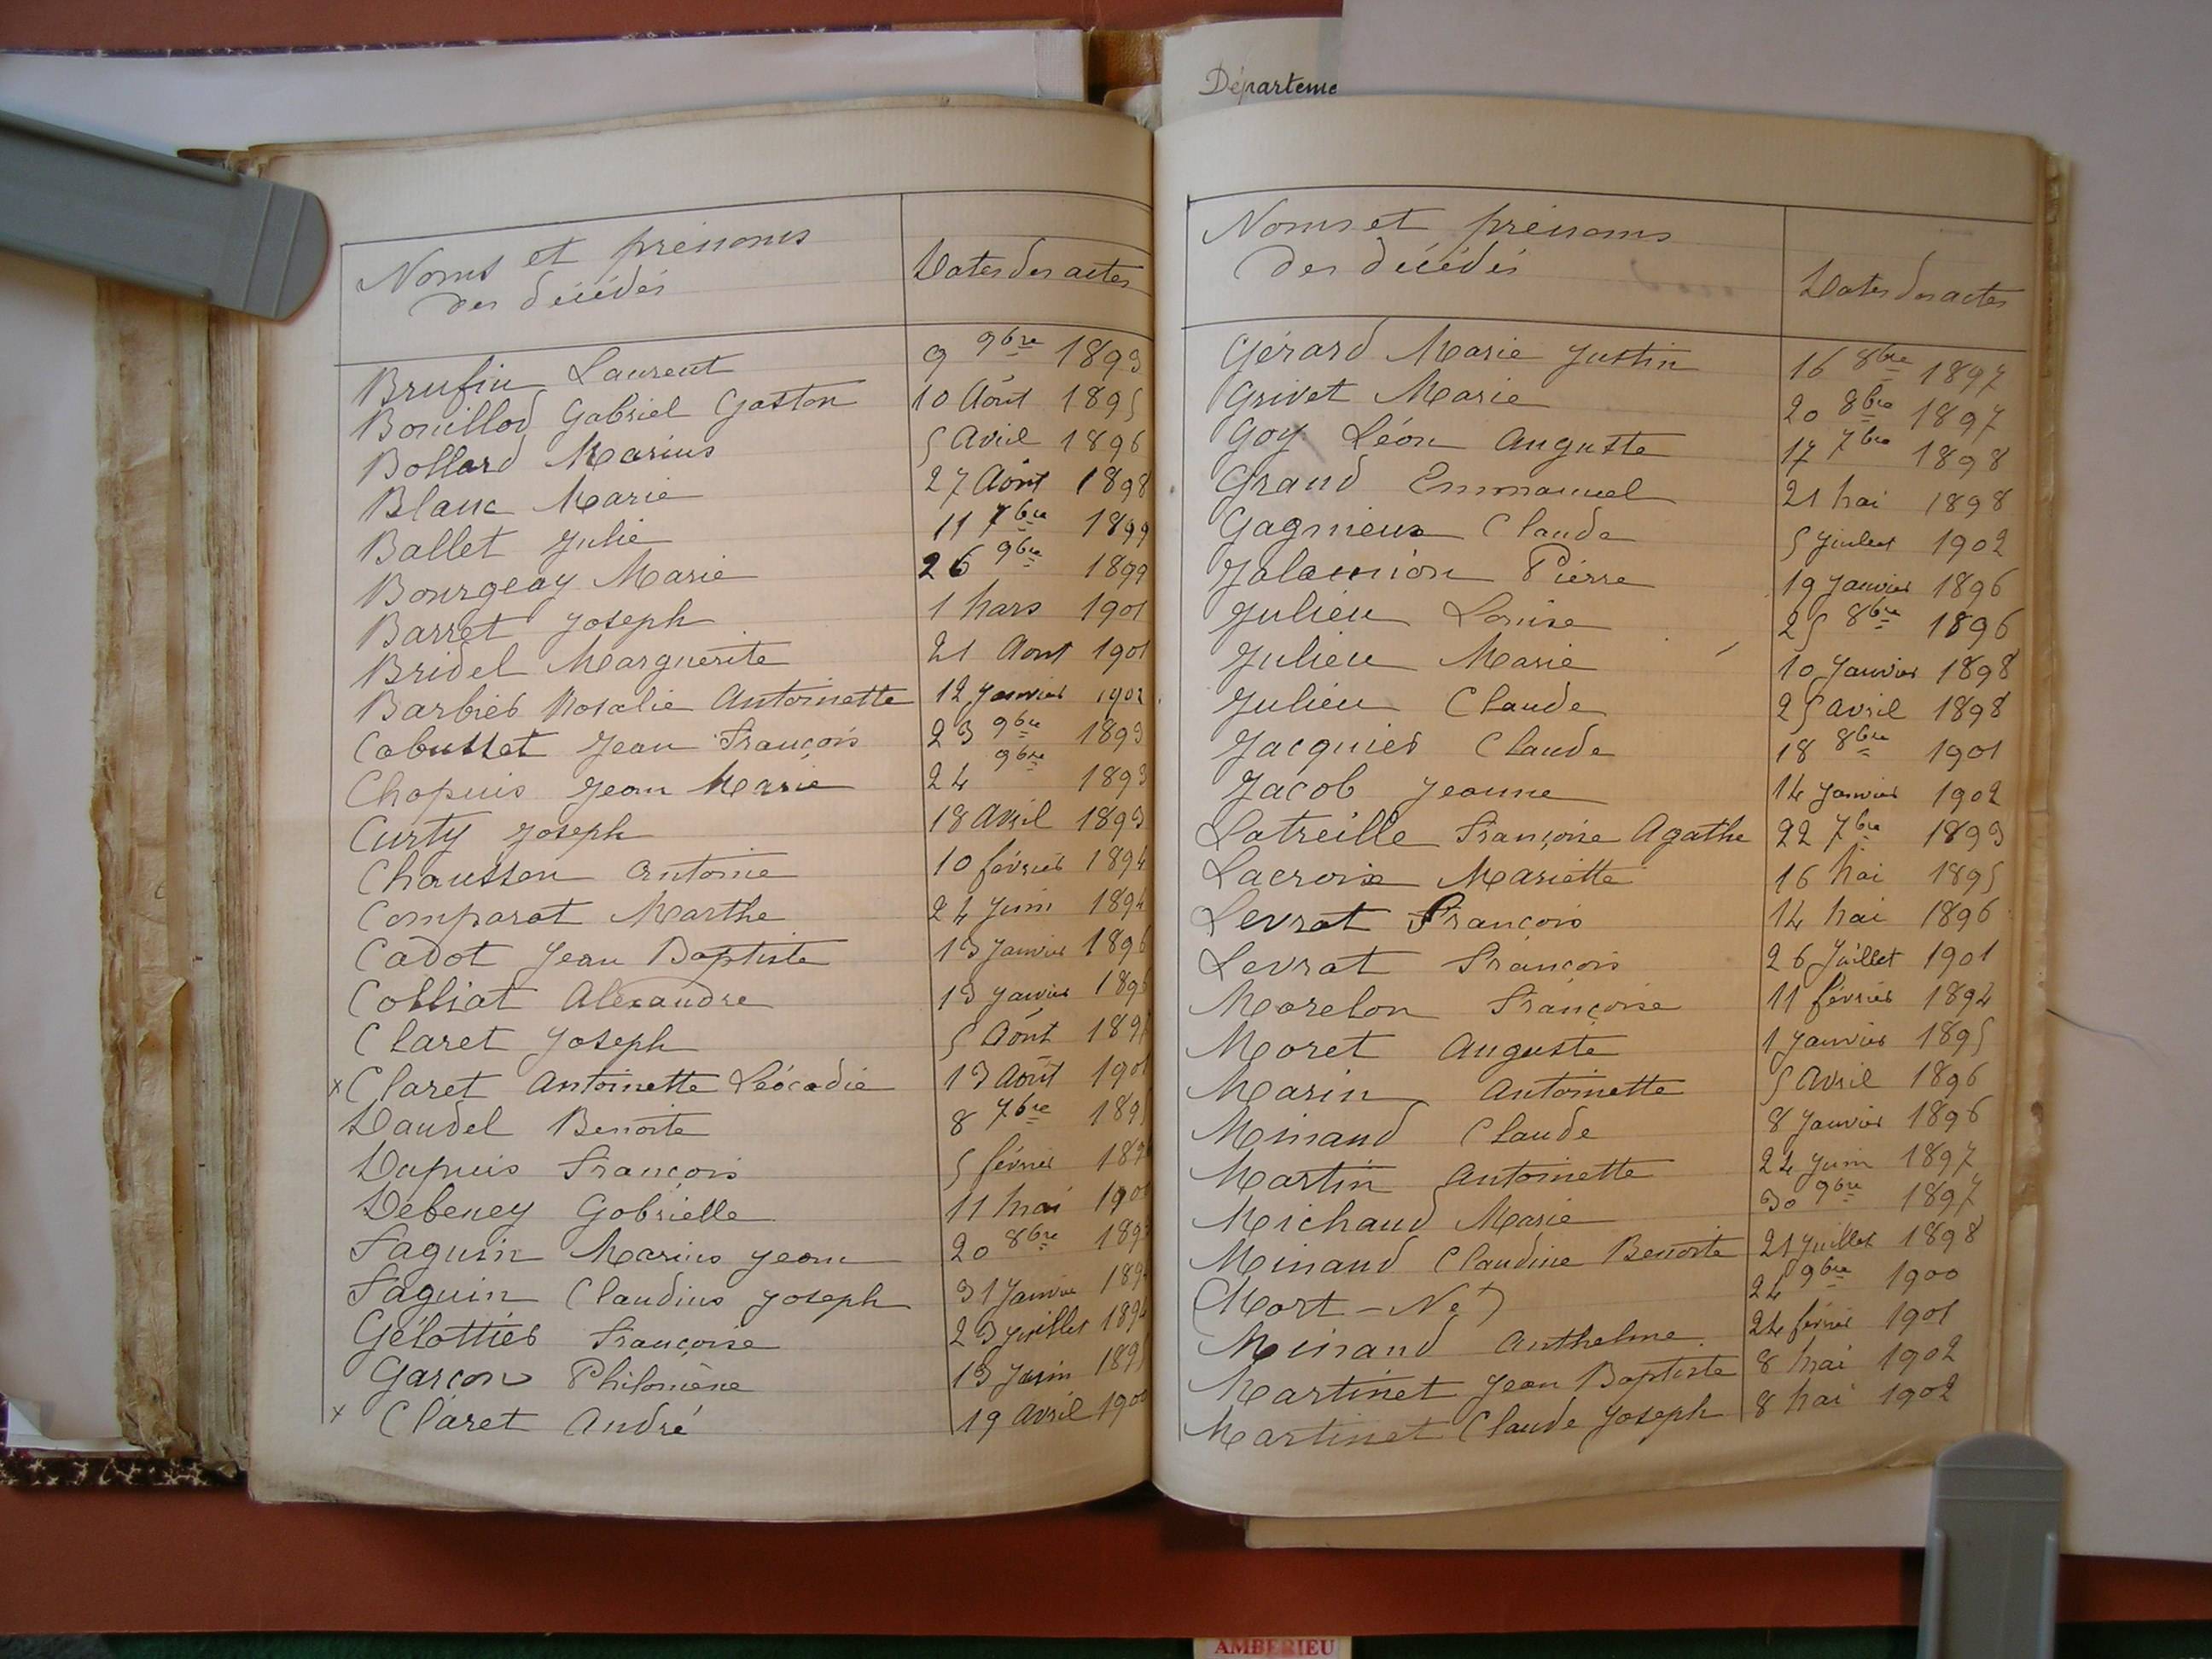 Départeme
Noms et prénoms
des décédés
Dates des actes
Brufin Laurent 9 9bre 1893
Bouillod Gabriel Gaston 10 Août 1895
Bollard Marius 5 Avril 1896
Blanc Marie 27 Août 1898
Ballet Julie 11 7bre 1899
Bourgeay Marie 26 9bre 1899
Barret Joseph 1 Mars 1901
Bridel Marguerite 21 Aout 1901
Barbier Rosalie Antoinette 12 Janvier 1902
Cabusset Jean François 23 9bre 1893
Chapuis Jean Marie 24 9bre 1893
Curty Joseph 18 Avril 1893
Chausson Antoine 10 février 1894
Comparat Marthe 24 Juin 1894
Cadot Jean Baptiste 13 Janvier 1896
Colliat Alexandre 13 Janvier 1896
Claret Joseph 5 Août 189
x Claret Antoinette Léocadie 13 Août 190
Daudel Benoite 8 7bre 189
Dapuis François 5 février 189
Debeney Gabrielle 11 Mai 190
Faguin Marius Jean 20 8bre 189
Faguin Claudius Joseph 31 Janvier 189
Gélottier Françoise 23 Juillet 1894
Garçon Philomène 13 Juin 189
x Claret André 19 Avril 1900
Noms et prénoms
des décédés
Dates des actes
Gérard Marie Justin 16 8bre 1897
Grivet Marie 20 8bre 1897
Goy Léon Auguste 17 7bre 1898
Grand Emmanuel 21 Mai 1898
Gagnieux Claude 5 Juillet 1902
Jalamion Pierre 19 Janvier 1896
Julien Louise 25 8bre 1896
Julien Marie 10 Janvier 1898
Julien Claude 25 avril 1898
Jacquier Claude 18 8bre 1901
Jacob Jeanne 14 Janvier 1902
Latreille Françoise Agathe 22 7bre 1893
Lacroix Mariette 16 Mai 1895
Levrat François 14 Mai 1896
Levrat François 26 Juillet 1901
Morelon Françoise 11 février 1894
Moret Auguste 1 Janvier 1895
Marin Antoinette 5 Avril 1896
Minand Claude 8 Janvier 1896
Martin Antoinette 24 Juin 1897
Michaud Marie 30 9bre 1897
Minand Claudine Benoite 21 Juillet 1898
(Mort-Né) 24 9bre 1900
Minand Anthelme 24 février 1901
Martinet Jean Baptiste 8 Mai 1902
Martinet Claude Joseph 8 Mai 1902
AMBERIEU